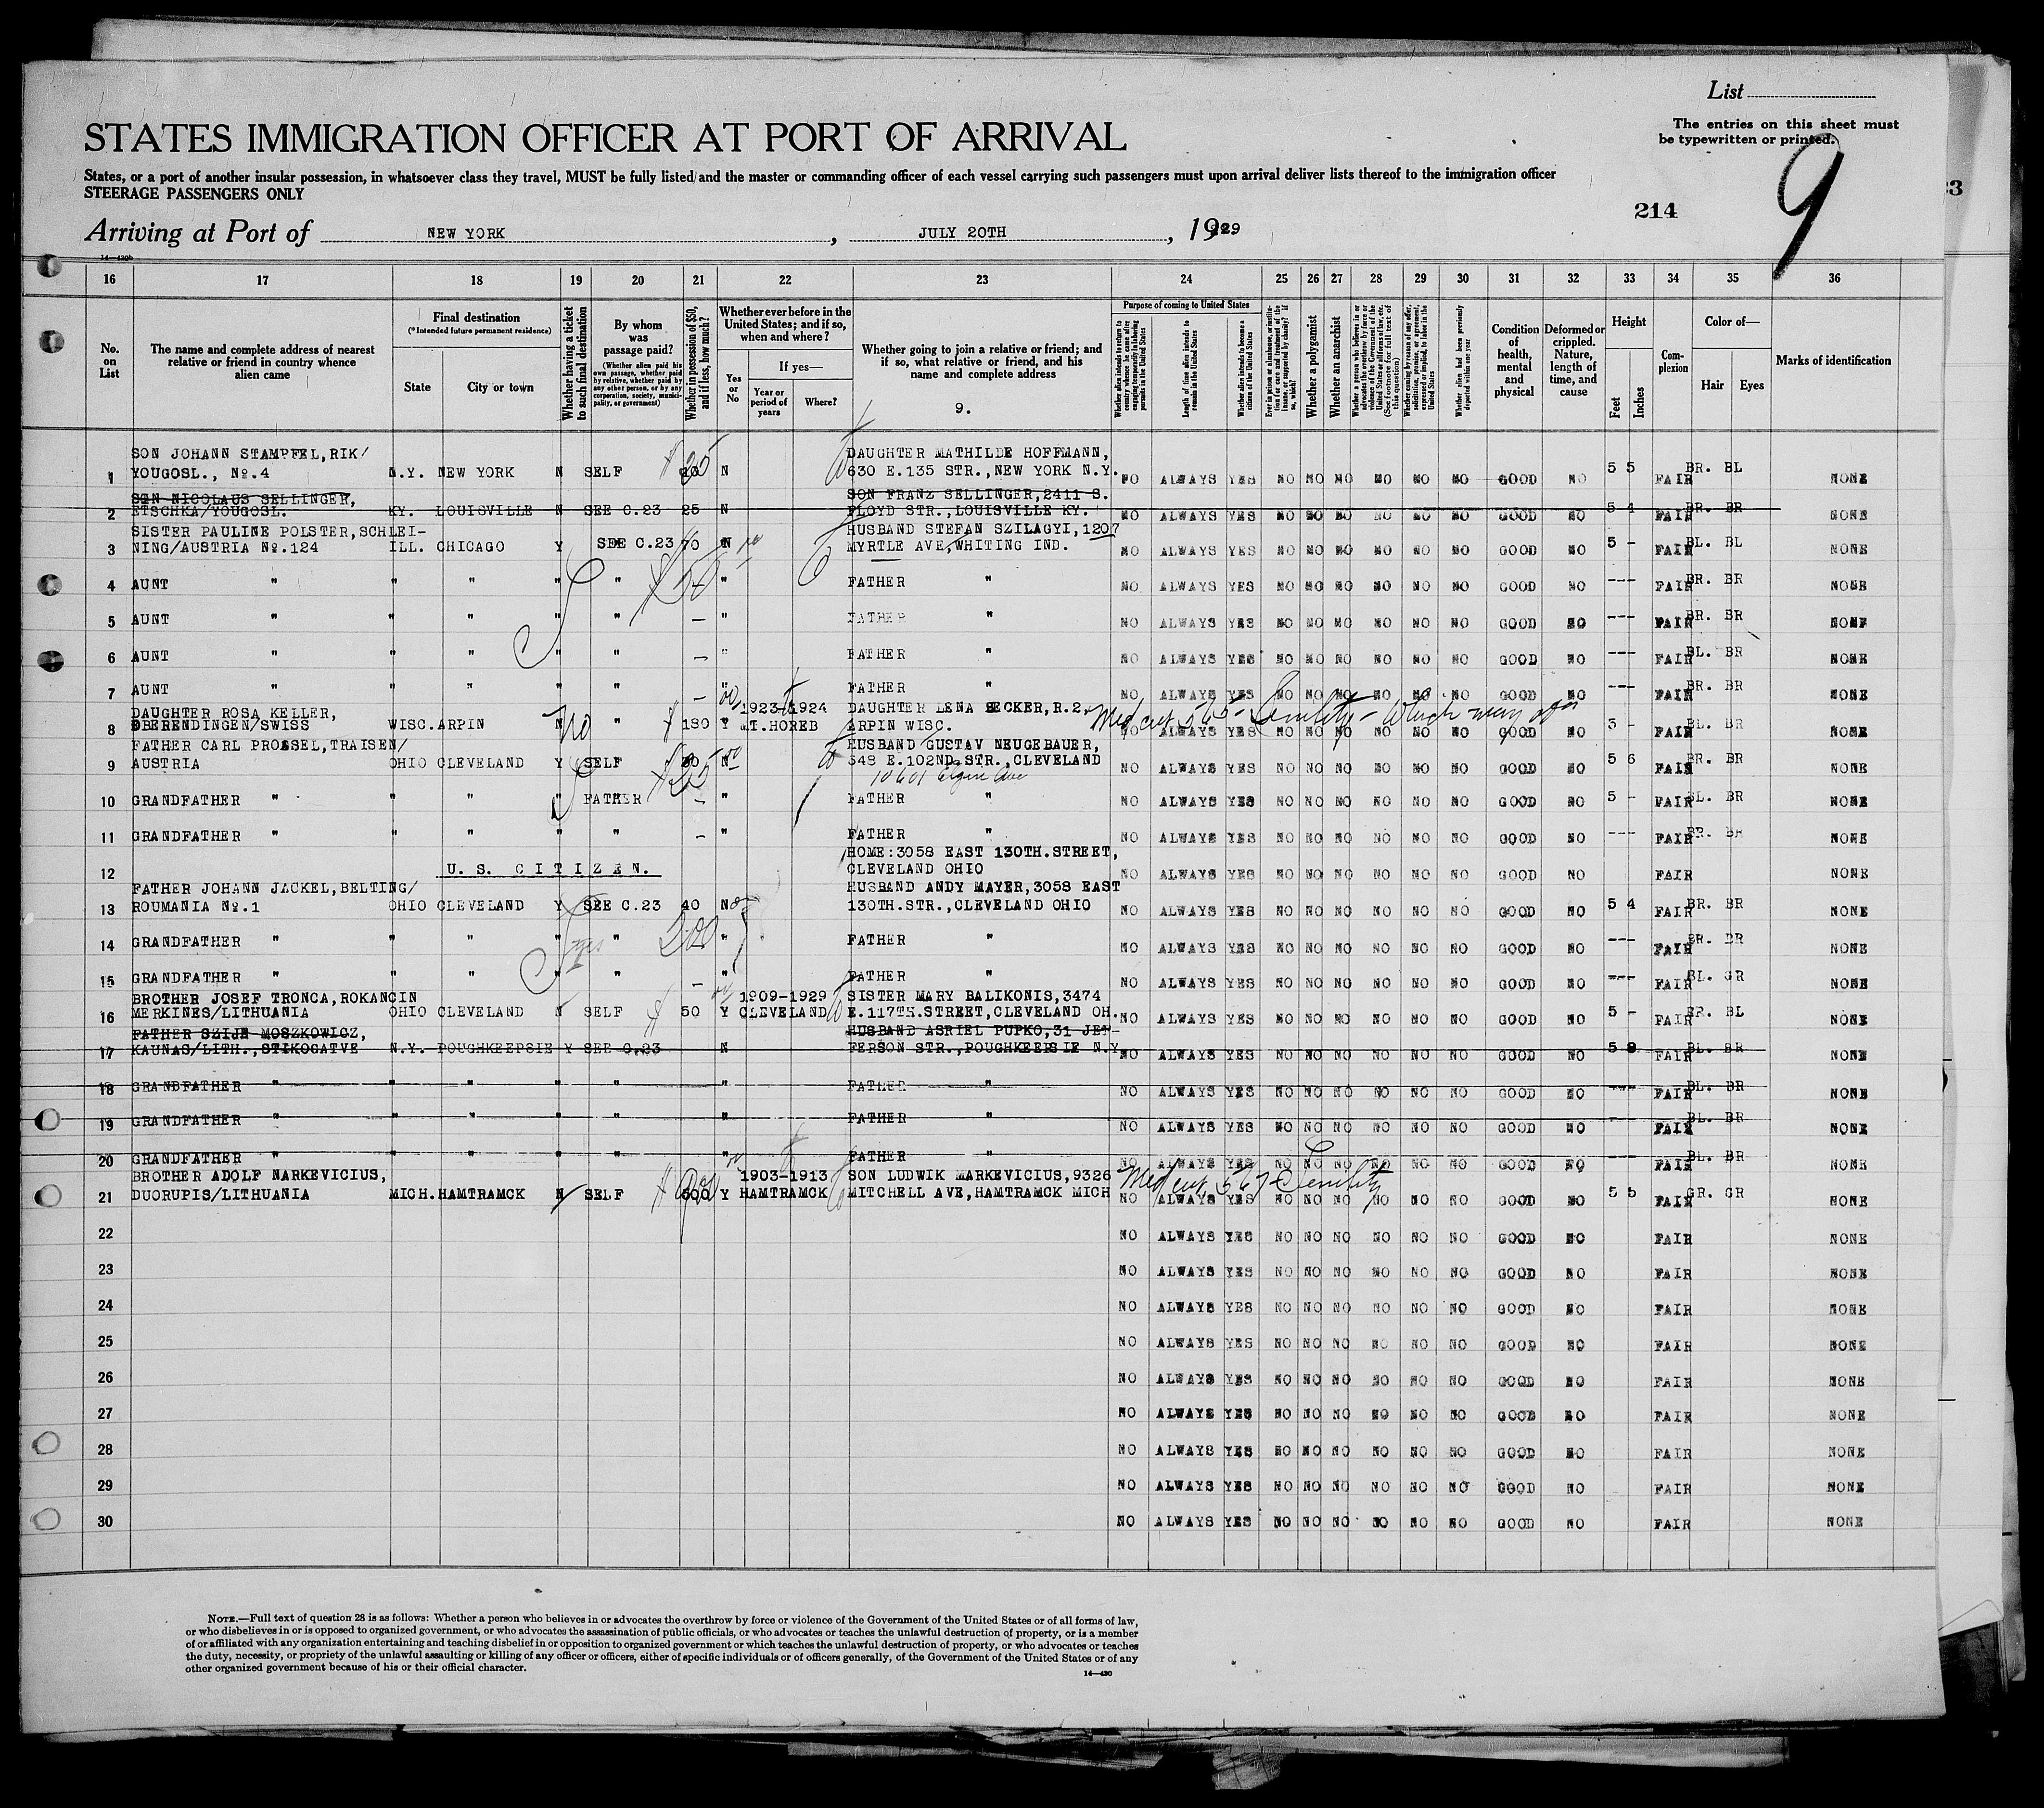 List
The entries on this sheet must
be typewritten or printed.
9
STATES IMMIGRATION OFFICER AT PORT OF ARRIVAL
States, or a port of another insular possession, in whatsoever class they travel, MUST be fully listed and the master or commanding officer of each vessel carrying such passengers must upon arrival deliver lists thereof to the immigration officer
STEERAGE PASSENGERS ONLY
214
Arriving at Port of NEW YORK, JULY 20TH, 1929
16 17 18 19 20 21 22 23 24 25 26 27 28 29 30 31 32 33 34 35 36
No. on List
The name and complete address of nearest relative or friend in country whence alien came
Final destination
(*Intended future permanent residence)
State City or town
Whether having a ticket to such final destination
By whom was passage paid?
(Whether alien paid his own passage, whether paid by relative, whether paid by any other person, or by any corporation, society, municipality, or government)
Whether in possession of $50, and if less, how much?
Whether ever before in the United States; and if so, when and where?
Yes or No
If yes—
Year or period of years
Where?
Whether going to join a relative or friend; and if so, what relative or friend, and his name and complete address
9.
Purpose of coming to United States
Length of time alien intends to remain in the United States
Whether alien intends to become a citizen of the United States
Whether a polygamist
Whether an anarchist
Condition of health, mental and physical
Deformed or crippled. Nature, length of time, and cause
Height
Feet Inches
Complexion
Color of—
Hair Eyes
Marks of identification
SON JOHANN STAMPFEL, RIK/ DAUGHTER MATHILDE HOFFMANN,
1 YOUGOSL., No.4 N.Y. NEW YORK N SELF N 630 E.135 STR., NEW YORK N.Y. NO ALWAYS YES NO NO NO NO NO NO GOOD NO 5 5 FAIR BR. BL NONE
SON NICOLAUS SELLINGER, SON FRANZ SELLINGER, 2411 S.
2 ETSCHKA/YOUGOSL. KY. LOUISVILLE N SEE C.23 25 N FLOYD STR., LOUISVILLE KY. NO ALWAYS YES NO NO NO NO NO NO GOOD NO 5 4 FAIR BR. BR NONE
SISTER PAULINE POLSTER, SCHLEI- HUSBAND STEFAN SZILAGYI, 1207
3 NING/AUSTRIA No.124 ILL. CHICAGO Y SEE C.23 70 N MYRTLE AVE, WHITING IND. NO ALWAYS YES NO NO NO NO NO NO GOOD NO 5 - FAIR BL. BL NONE
4 AUNT " " " " " " FATHER " NO ALWAYS YES NO NO NO NO NO NO GOOD NO --- FAIR BR. BR NONE
5 AUNT " " " " " — " FATHER " NO ALWAYS YES NO NO NO NO NO NO GOOD NO --- FAIR BR. BR NONE
6 AUNT " " " " " — " FATHER " NO ALWAYS YES NO NO NO NO NO NO GOOD NO --- FAIR BL. BR NONE
7 AUNT " " " " " — " FATHER " NO ALWAYS YES NO NO NO NO NO NO GOOD NO --- FAIR BR. BR NONE
DAUGHTER ROSA KELLER, 1923-1924 DAUGHTER LENA BECKER, R.2,
8 OBERENDINGEN/SWISS WISC. ARPIN N No " 180 Y MT.HOREB ARPIN WISC. NO ALWAYS YES NO NO NO NO NO NO GOOD NO 5 - FAIR BL. BR NONE
Med cert 565 - Senility - which may
FATHER CARL PROSSEL, TRAISEN/ HUSBAND GUSTAV NEUGEBAUER,
9 AUSTRIA OHIO CLEVELAND Y SELF N 548 E.102ND.STR., CLEVELAND NO ALWAYS YES NO NO NO NO NO NO GOOD NO 5 6 FAIR BR. BR NONE
10601 Elgin Ave
10 GRANDFATHER " " " " FATHER — " FATHER " NO ALWAYS YES NO NO NO NO NO NO GOOD NO 5 - FAIR BL. BR NONE
11 GRANDFATHER " " " " " — " FATHER " NO ALWAYS YES NO NO NO NO NO NO GOOD NO --- FAIR BR. BR NONE
HOME: 3058 EAST 130TH.STREET,
12 U. S. CITIZEN. CLEVELAND OHIO NO ALWAYS YES NO NO NO NO NO NO GOOD NO FAIR NONE
FATHER JOHANN JACKEL, BELTING/ HUSBAND ANDY MAYER, 3058 EAST
13 ROUMANIA No.1 OHIO CLEVELAND Y SEE C.23 40 N 130TH.STR., CLEVELAND OHIO NO ALWAYS YES NO NO NO NO NO NO GOOD NO 5 4 FAIR BR. BR NONE
14 GRANDFATHER " " " " 200 " FATHER " NO ALWAYS YES NO NO NO NO NO NO GOOD NO --- FAIR BR. BR NONE
15 GRANDFATHER " " " " " — " FATHER " NO ALWAYS YES NO NO NO NO NO NO GOOD NO --- FAIR BL. GR NONE
BROTHER JOSEF TRONCA, ROKANCIN 1909-1929 SISTER MARY BALIKONIS, 3474
16 MERKINES/LITHUANIA OHIO CLEVELAND N SELF 50 Y CLEVELAND E.117TH.STREET, CLEVELAND OH. NO ALWAYS YES NO NO NO NO NO NO GOOD NO 5 - FAIR BR. BL NONE
FATHER SZIJE MOSZKOWICZ, HUSBAND ASRIEL PUPKO, 31 JEF-
17 KAUNAS/LITH., STIKOGATVE N.Y. POUGHKEEPSIE Y SEE C.23 N FERSON STR., POUGHKEEPSIE N.Y. NO ALWAYS YES NO NO NO NO NO NO GOOD NO 5 8 FAIR BL. BR NONE
18 GRANDFATHER " " " " " " FATHER " NO ALWAYS YES NO NO NO NO NO NO GOOD NO --- FAIR BL. BR NONE
19 GRANDFATHER " " " " " " FATHER " NO ALWAYS YES NO NO NO NO NO NO GOOD NO --- FAIR BL. BR NONE
20 GRANDFATHER " " " " " " FATHER " NO ALWAYS YES NO NO NO NO NO NO GOOD NO FAIR BL. BR NONE
BROTHER ADOLF NARKEVICIUS, 1903-1913 SON LUDWIK MARKEVICIUS, 9326 Med cert 567 Senility
21 DUORUPIS/LITHUANIA MICH. HAMTRAMCK N SELF 500 Y HAMTRAMCK MITCHELL AVE, HAMTRAMCK MICH NO ALWAYS YES NO NO NO NO NO NO GOOD NO 5 5 FAIR GR. GR NONE
22 NO ALWAYS YES NO NO NO NO NO NO GOOD NO FAIR NONE
23 NO ALWAYS YES NO NO NO NO NO NO GOOD NO FAIR NONE
24 NO ALWAYS YES NO NO NO NO NO NO GOOD NO FAIR NONE
25 NO ALWAYS YES NO NO NO NO NO NO GOOD NO FAIR NONE
26 NO ALWAYS YES NO NO NO NO NO NO GOOD NO FAIR NONE
27 NO ALWAYS YES NO NO NO NO NO NO GOOD NO FAIR NONE
28 NO ALWAYS YES NO NO NO NO NO NO GOOD NO FAIR NONE
29 NO ALWAYS YES NO NO NO NO NO NO GOOD NO FAIR NONE
30 NO ALWAYS YES NO NO NO NO NO NO GOOD NO FAIR NONE
NOTE.—Full text of question 28 is as follows: Whether a person who believes in or advocates the overthrow by force or violence of the Government of the United States or of all forms of law,
or who disbelieves in or is opposed to organized government, or who advocates the assassination of public officials, or who advocates or teaches the unlawful destruction of property, or is a member
of or affiliated with any organization entertaining and teaching disbelief in or opposition to organized government or which teaches the unlawful destruction of property, or who advocates or teaches
the duty, necessity, or propriety of the unlawful assaulting or killing of any officer or officers, either of specific individuals or of officers generally, of the Government of the United States or of any
other organized government because of his or their official character.
14—430